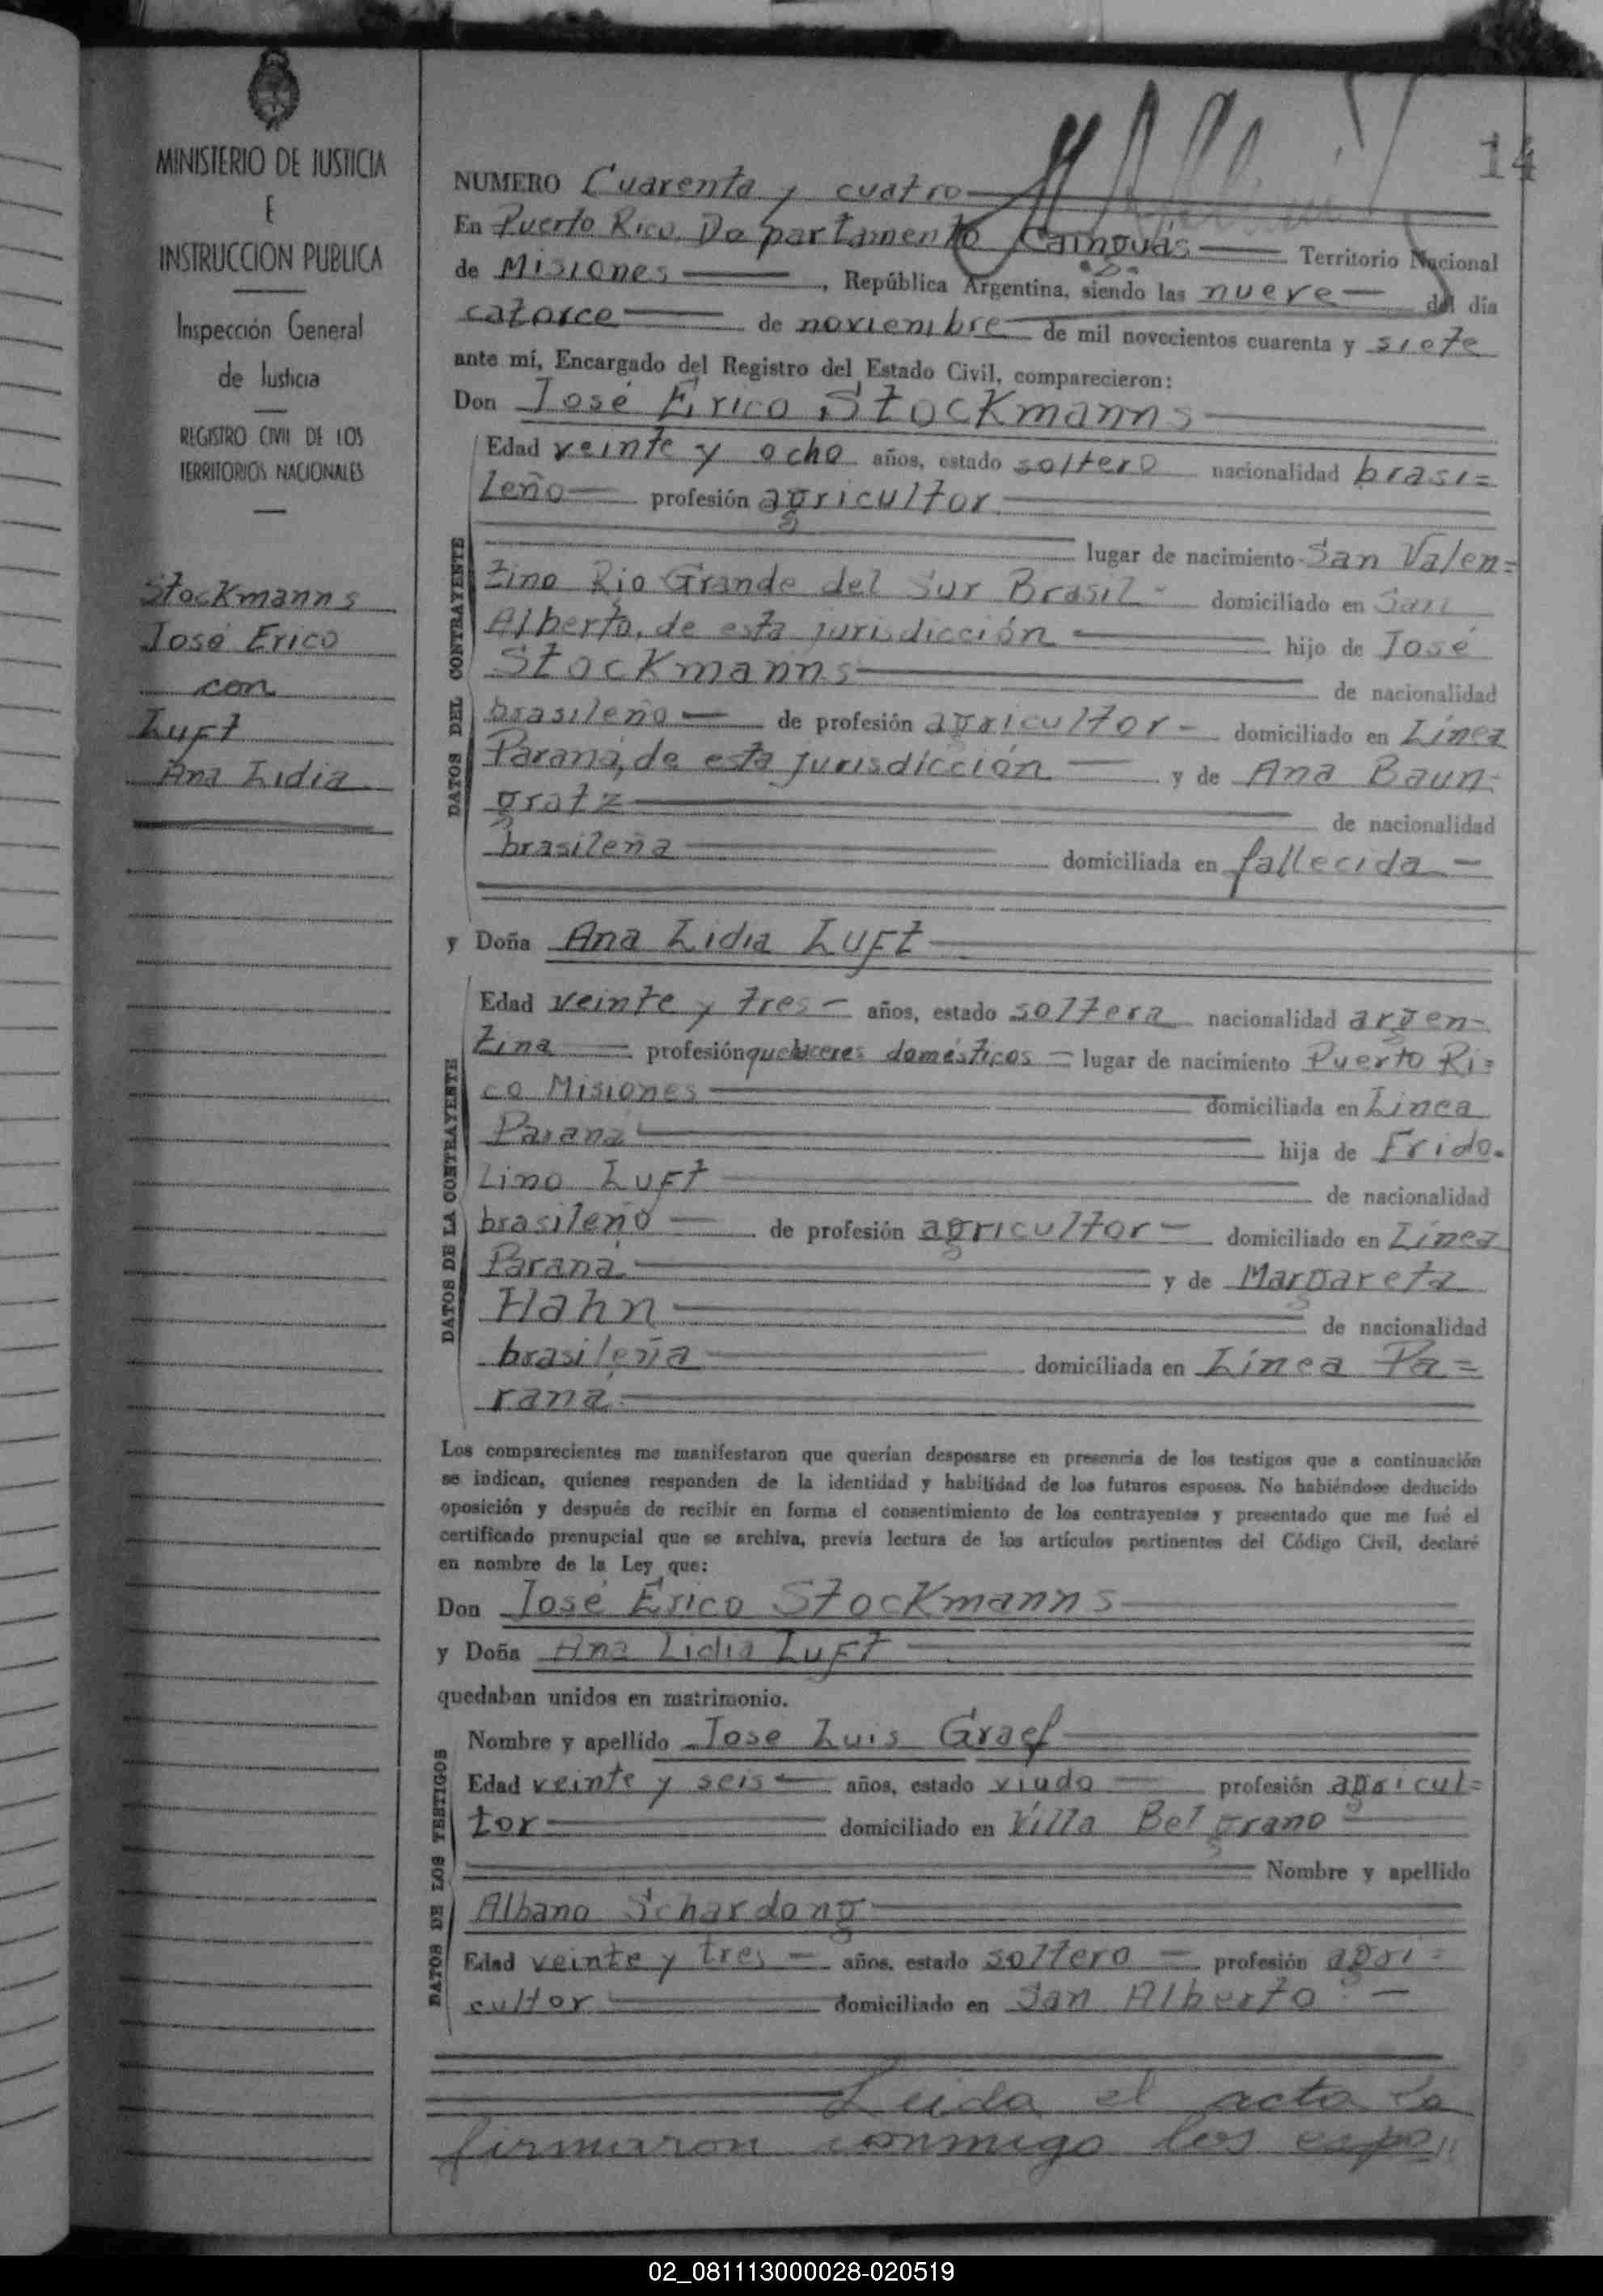 14
MINISTERIO DE JUSTICIA
E
INSTRUCCION PUBLICA
Inspección General
de Justicia
REGISTRO CIVIL DE LOS
TERRITORIOS NACIONALES
Stockmanns
José Erico
con
Luft
Ana Lidia
NUMERO Cuarenta y cuatro
En Puerto Rico Departamento Cainguás Territorio Nacional
de Misiones, República Argentina, siendo las nueve del día
catorce de noviembre de mil novecientos cuarenta y siete
ante mí, Encargado del Registro del Estado Civil, comparecieron:
Don José Erico Stockmanns
DATOS DEL CONTRAYENTE
Edad veinte y ocho años, estado soltero nacionalidad brasi=
leño profesión agricultor
lugar de nacimiento San Valen=
tino Rio Grande del Sur Brasil - domiciliado en San
Alberto, de esta jurisdicción hijo de José
Stockmanns de nacionalidad
brasileño de profesión agricultor domiciliado en Línea
Paraná, de esta jurisdicción y de Ana Baun-
gratz de nacionalidad
brasileña domiciliada en fallecida
y Doña Ana Lidia Luft
DATOS DE LA CONTRAYENTE
Edad veinte y tres años, estado soltera nacionalidad argen-
tina profesión quehaceres domésticos lugar de nacimiento Puerto Ri=
co Misiones domiciliada en Linea
Paraná hija de Frido-
lino Luft de nacionalidad
brasileño de profesión agricultor domiciliado en Línea
Paraná y de Margareta
Hahn de nacionalidad
brasileña domiciliada en Línea Pa=
raná
Los comparecientes me manifestaron que querían desposarse en presencia de los testigos que a continuación
se indican, quienes responden de la identidad y habilidad de los futuros esposos. No habiéndose deducido
oposición y después de recibir en forma el consentimiento de los contrayentes y presentado que me fué el
certificado prenupcial que se archiva, previa lectura de los artículos pertinentes del Código Civil, declaré
en nombre de la Ley que:
Don José Erico Stockmanns
y Doña Ana Lidia Luft
quedaban unidos en matrimonio.
DATOS DE LOS TESTIGOS
Nombre y apellido Jose Luis Graef
Edad veinte y seis años, estado viudo profesión agricul=
tor domiciliado en Villa Belgrano
Nombre y apellido
Albano Schardong
Edad veinte y tres años, estado soltero profesión agri=
cultor domiciliado en San Alberto
Leida el acta la
firmaron conmigo los espo"
02_081113000028-020519